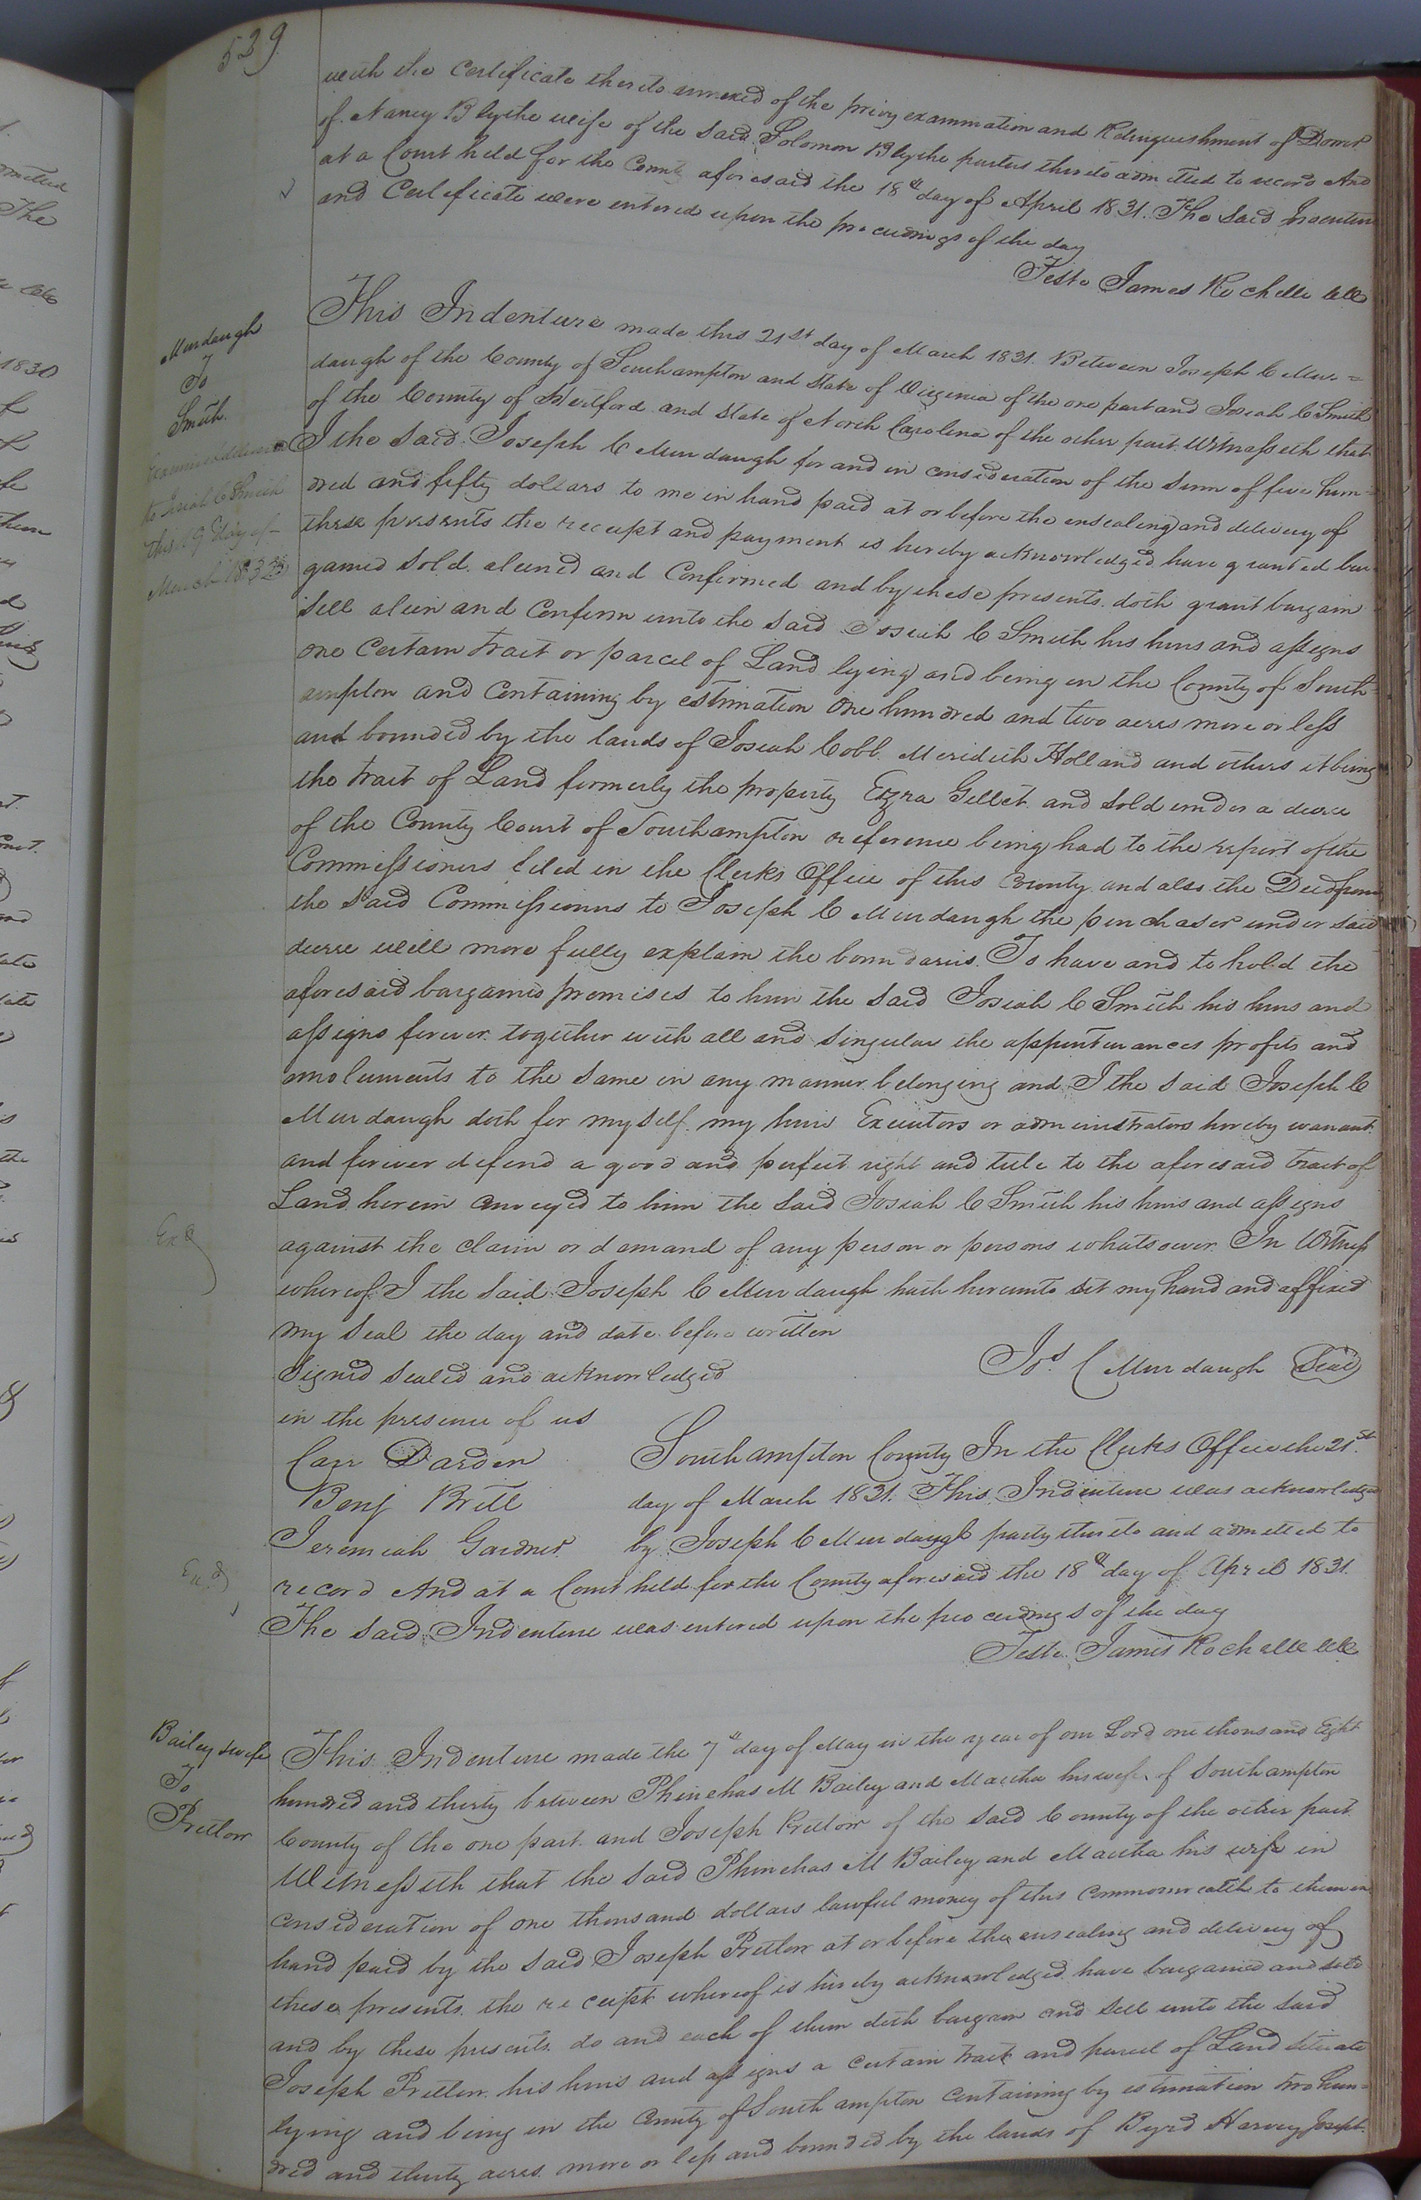 529
with the Certificate thereto annexed of the privy examination and Relinquishment of Dower
of Nancy Blythe wife of the said Solomon Blythe parties thereto admitted to record And
at a Court held for the County aforesaid the 18th day of April 1831. The said Indenture
and Certificate were entered upon the proceedings of the day
Teste James Rochelle Clk
Murdaugh
To
Smith.
Examined & delivered
to Josiah C Smith
this 19th day of
March 1832
This Indenture made this 21st day of March 1831. Between Joseph C Mur=
daugh of the County of Southampton and State of Virginia of the one part and Josiah C Smith
of the County of Hertford and State of North Carolina of the other part. Witnesseth that
I the said Joseph C Murdaugh for and in consideration of the sum of five hun=
dred and fifty dollars to me in hand paid at or before the ensealing and delivery of
these presents the receipt and payment is hereby acknowledged, have granted bar
gained sold aliened and Confirmed and by these presents doth grant bargain
Sell alien and Confirm unto the said Josiah C Smith his heirs and assigns
one certain tract or parcel of Land lying and being in the County of South=
ampton and Containing by estimation One hundred and two acres more or less
and bounded by the lands of Josiah Cobb. Meridith Holland and others it being
the tract of Land formerly the property Ezra Gillet and sold under a decree
of the County Court of Southampton reference being had to the report of the
Commissioners filed in the Clerks Office of this County and also the Deed from
the said Commissioners to Joseph C Murdaugh the purchaser under said
decree will more fully explain the boundaries. To have and to hold the
aforesaid bargained premises to him the said Josiah C Smith his heirs and
assigns forever together with all and singular the appurtenances profits and
emoluments to the same in any manner belonging and I the said Joseph C
Murdaugh doth for myself my heirs Executors or administrators hereby warrant
and forever defend a good and perfect right and title to the aforesaid tract of
Land herein conveyed to him the said Josiah C Smith his heirs and assigns
against the claim or demand of any person or persons whatsoever. In Witness
whereof I the said Joseph C Murdaugh hath hereunto set my hand and affixed
my seal the day and date before written
Exd
Signed sealed and acknowledged
Jos C Murdaugh Seal
in the presence of us
Carr Darden
Benj Britt
Jeremiah Gardner
Southampton County In the Clerks Office the 21st
day of March 1831. This Indenture was acknowledged
by Joseph C Murdaugh party thereto and admitted to
record And at a Court held for the County aforesaid the 18th day of April 1831.
The said Indenture was entered upon the proceedings of the day
Teste James Rochelle Clk
Exd
Bailey & wife
To
Pretlow
This Indenture made the 7th day of May in the year of our Lord one thousand Eight
hundred and thirty between Phinehas M Bailey and Martha his wife of Southampton
County of the one part and Joseph Pretlow of the said County of the other part.
Witnesseth that the said Phinehas M Bailey and Martha his wife in
consideration of one thousand dollars lawful money of this commonwealth to them in
hand paid by the said Joseph Pretlow at or before the ensealing and delivery of
these presents the receipt whereof is hereby acknowledged have bargained and sold
and by these presents do and each of them doth bargain and sell unto the said
Joseph Pretlow his heirs and assigns a certain tract and parcel of Land situate
lying and being in the County of Southampton containing by estimation two hun=
dred and thirty acres more or less and bounded by the lands of Byrd Harvey Joseph